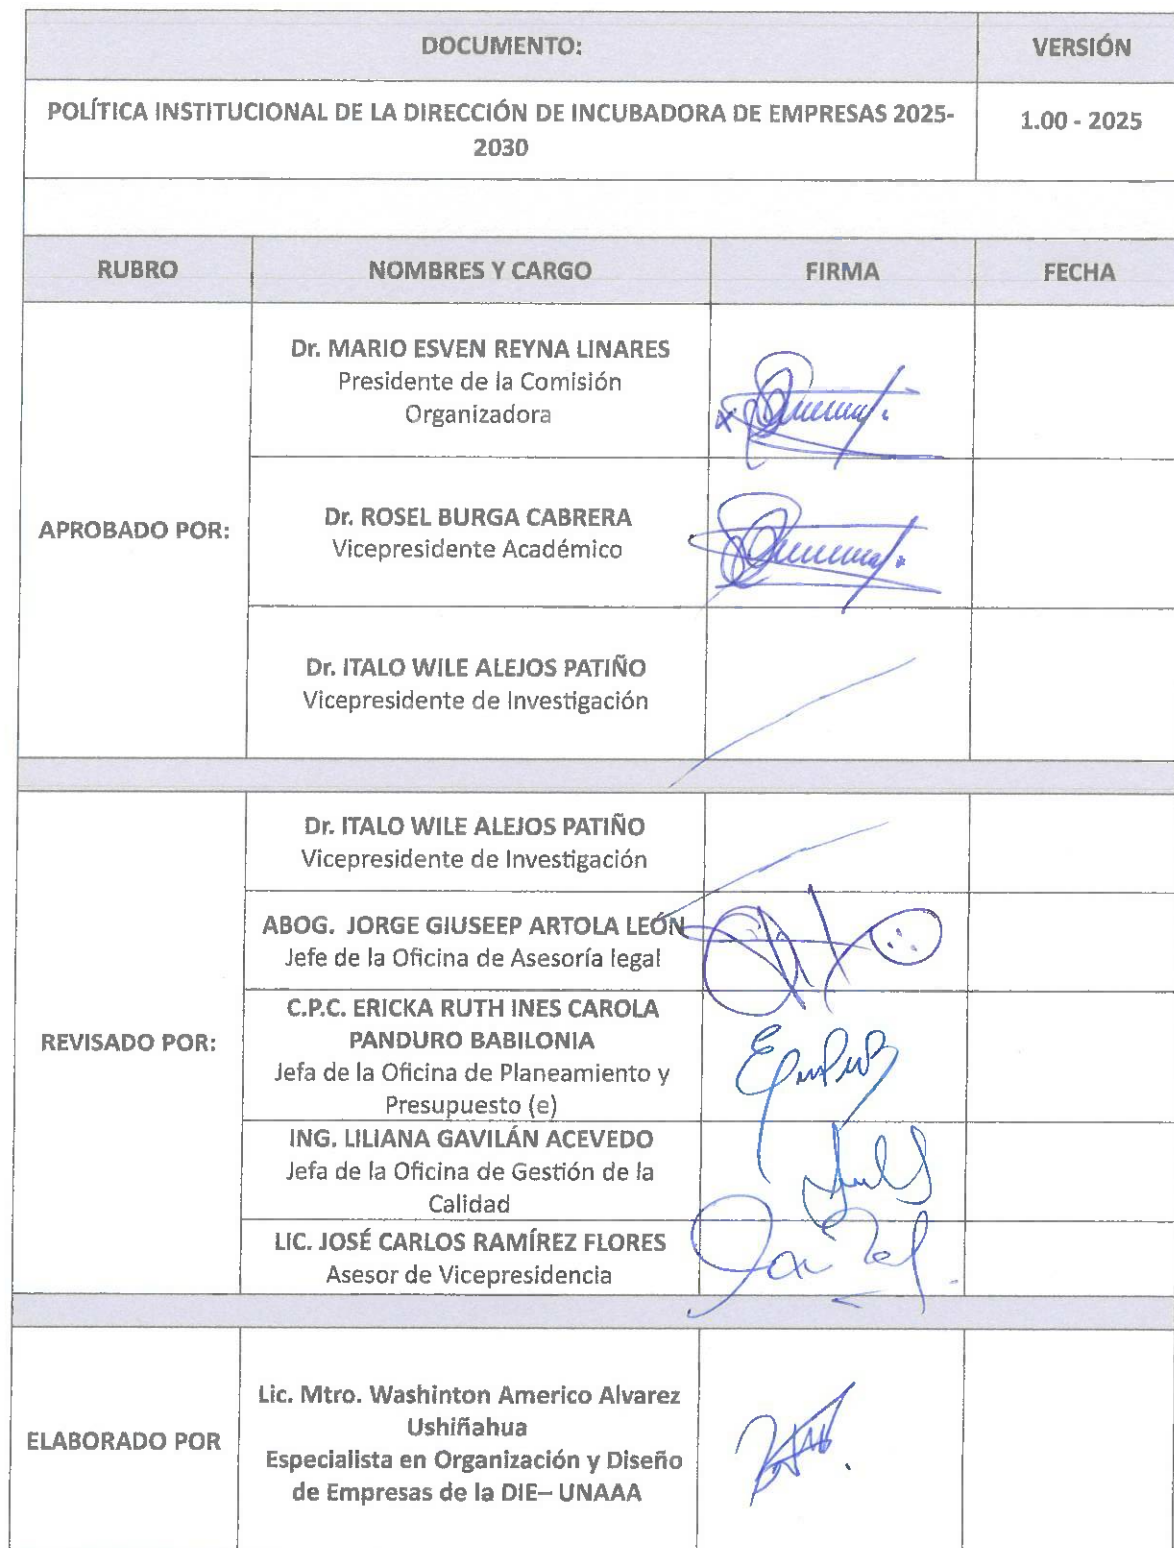 DOCUMENTO:
VERSIÓN
POLÍTICA INSTITUCIONAL DE LA DIRECCIÓN DE INCUBADORA DE EMPRESAS 2025-
2030
1.00 - 2025
RUBRO
NOMBRES Y CARGO
FIRMA
FECHA
APROBADO POR:
Dr. MARIO ESVEN REYNA LINARES
Presidente de la Comisión
Organizadora
Dr. ROSEL BURGA CABRERA
Vicepresidente Académico
Dr. ITALO WILE ALEJOS PATIÑO
Vicepresidente de Investigación
REVISADO POR:
Dr. ITALO WILE ALEJOS PATIÑO
Vicepresidente de Investigación
ABOG. JORGE GIUSEEP ARTOLA LEÓN
Jefe de la Oficina de Asesoría legal
C.P.C. ERICKA RUTH INES CAROLA
PANDURO BABILONIA
Jefa de la Oficina de Planeamiento y
Presupuesto (e)
ING. LILIANA GAVILÁN ACEVEDO
Jefa de la Oficina de Gestión de la
Calidad
LIC. JOSÉ CARLOS RAMÍREZ FLORES
Asesor de Vicepresidencia
ELABORADO POR
Lic. Mtro. Washinton Americo Alvarez
Ushiñahua
Especialista en Organización y Diseño
de Empresas de la DIE– UNAAA